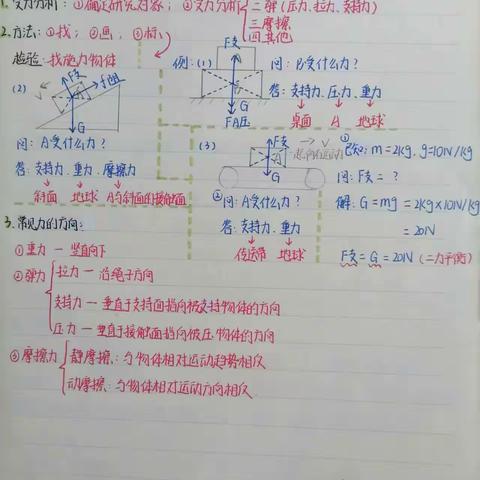 1. 受力分析: ①确定研究对象; ②受力分析
二弹(压力、拉力、支持力)
三摩擦
四其他
2. 方法: ①找; ②画; ③标
检验: 找施力物体
例: (1)
F支
G
FA压
问: B受什么力?
答: 支持力、压力、重力
桌面 A 地球
(2)
F支
f阻
v
G
问: A受什么力?
答: 支持力、重力、摩擦力
斜面 地球 A与斜面的接触面
(3)
F支
v
A
一起向右运动
G
②问: A受什么力?
答: 支持力、重力
传送带 地球
①
已知: m=2kg, g=10N/kg
问: F支=?
解: G=mg=2kg×10N/kg
=20N
F支=G=20N (二力平衡)
3. 常见力的方向:
①重力 — 竖直向下
②弹力
拉力 — 沿绳子方向
支持力 — 垂直于支持面指向被支持物体的方向
压力 — 垂直于接触面指向被压物体的方向
③摩擦力
静摩擦: 与物体相对运动趋势相反
动摩擦: 与物体相对运动方向相反